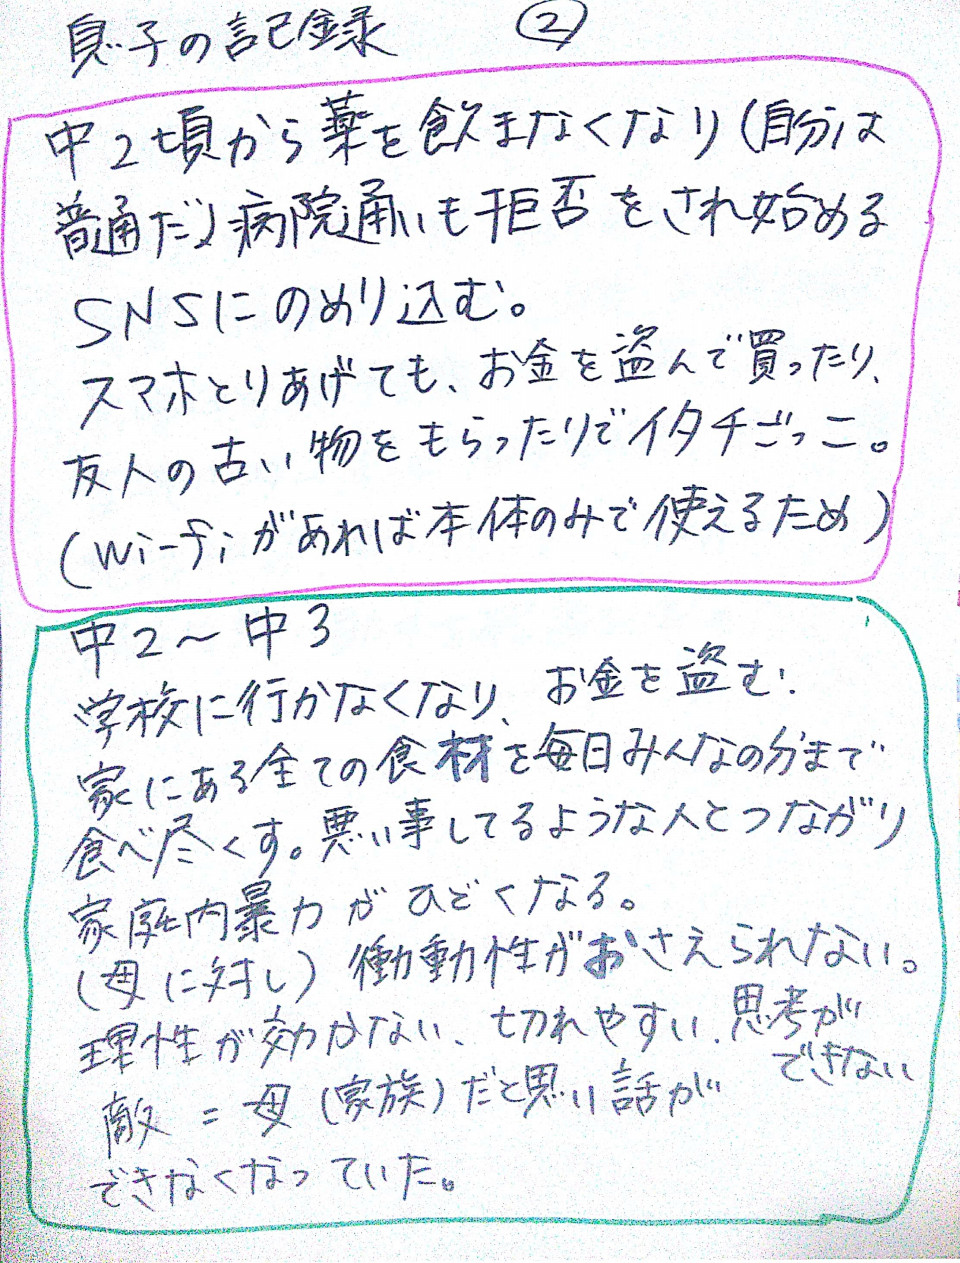 息子の記録 ②
中2頃から薬を飲まなくなり(自分は
普通だ)病院通いも拒否をされ始める
SNSにのめり込む。
スマホとりあげても、お金を盗んで買ったり、
友人の古い物をもらったりでイタチごっこ。
(Wi-fiがあれば本体のみで使えるため)
中2〜中3
学校に行かなくなり、お金を盗む.
家にある全ての食材を毎日みんなの分まで
食べ尽くす。悪い事してるような人とつながり
家庭内暴力がひどくなる。
(母に対し) 働動性がおさえられない。
理性が効かない、切れやすい、思考が
できない
敵=母(家族)だと思い話が
できなくなっていた。